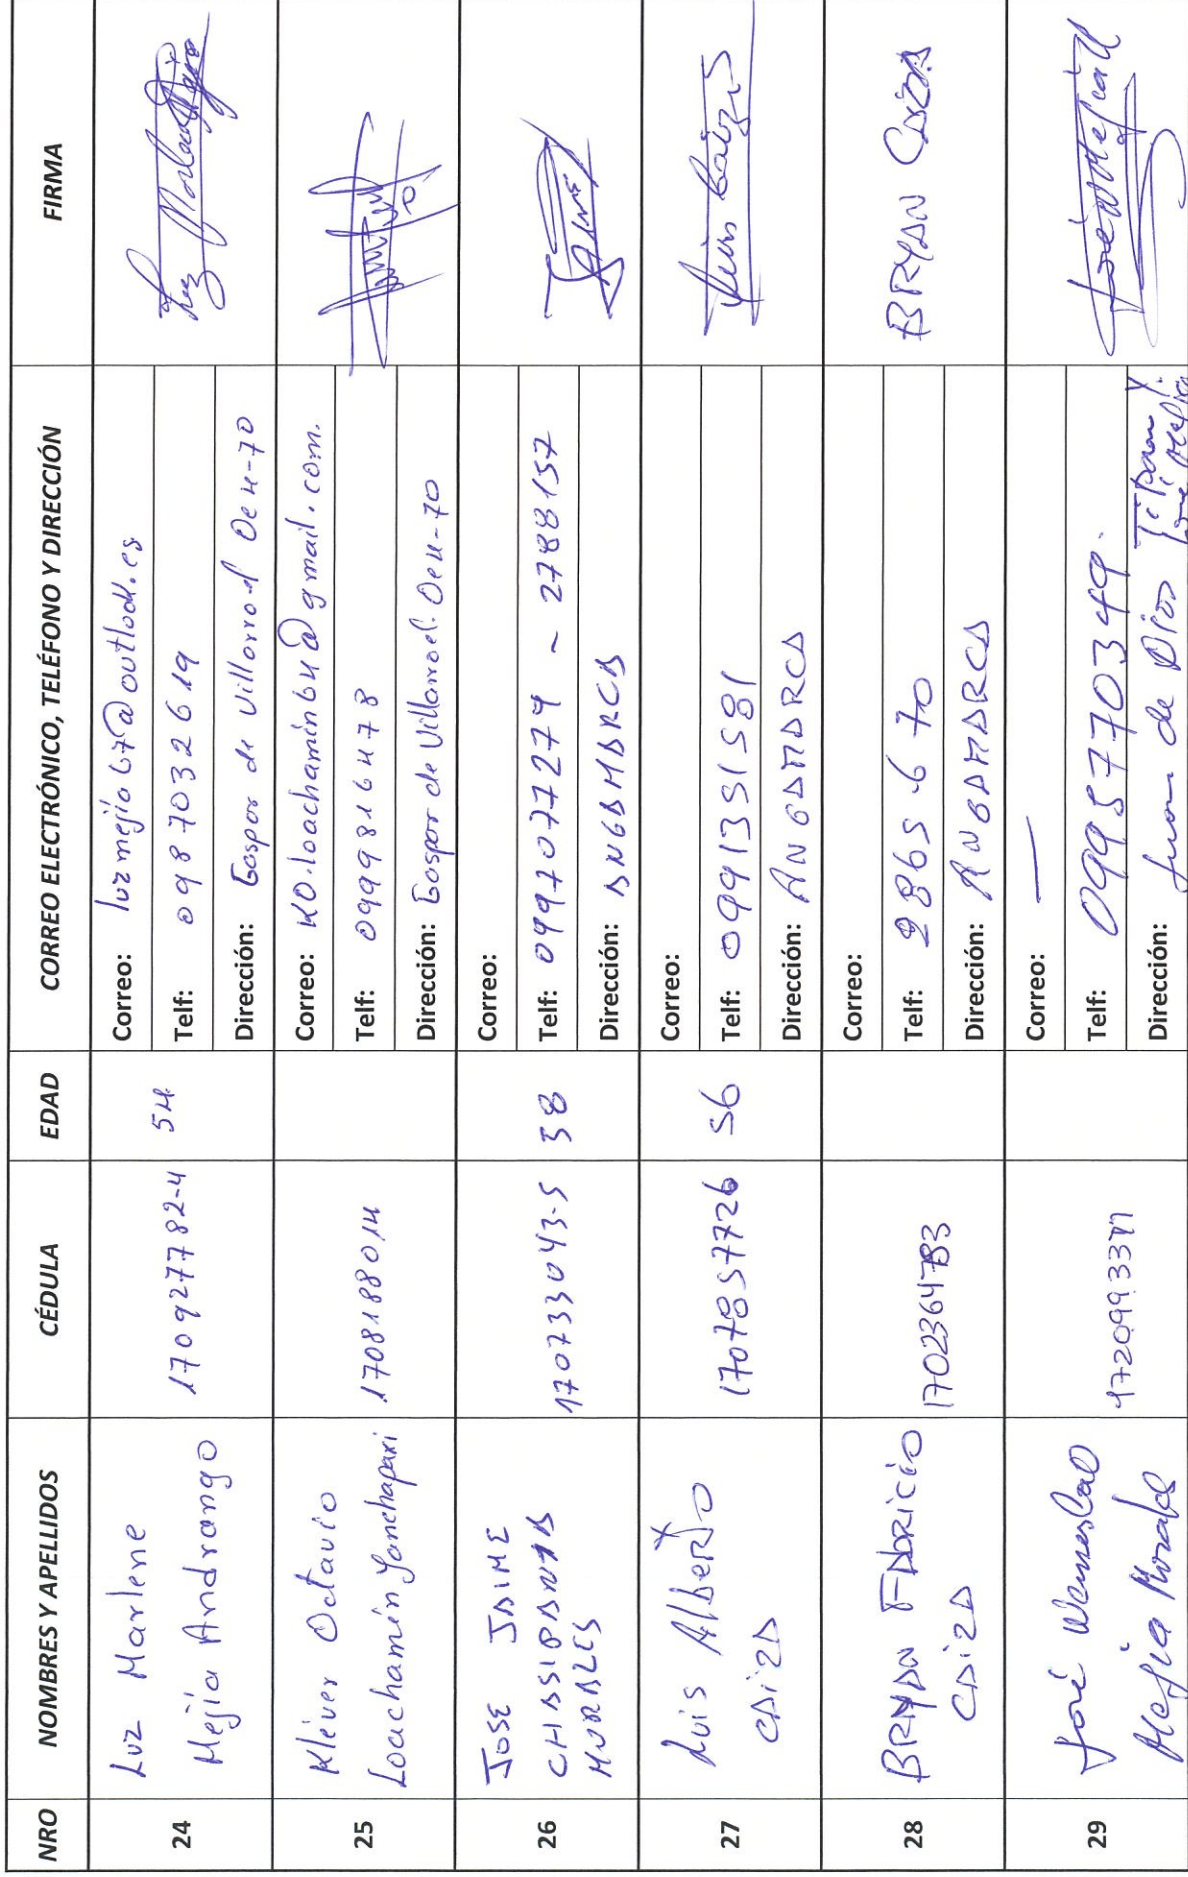 NRO NOMBRES Y APELLIDOS CÉDULA EDAD CORREO ELECTRÓNICO, TELÉFONO Y DIRECCIÓN FIRMA
24
Luz Marlene
Mejía Andrango
170927782-4
54
Correo: luzmejia67@outlook.es
Telf: 0987032619
Dirección: Gaspar de Villarroel Oe4-70
25
Kléver Octavio
Loachamín Yanchapaxi
1708188014
Correo: KO.loachamin64@gmail.com.
Telf: 0999816478
Dirección: Gaspar de Villarroel. Oe4-70
26
JOSE JAIME
CHASIPANTA
MORALES
170733043-5
38
Correo:
Telf: 0997077279 - 2788157
Dirección: ANGAMARCA
JAIME
27
Luis Alberto
CAiZA
1707857726
56
Correo:
Telf: 0991351581
Dirección: ANGAMARCA
Luis Caiza
28
BRYAN FABRICIO
CAiZA
1702364783
Correo:
Telf: 2865670
Dirección: ANGAMARCA
BRYAN CAiZA
29
José Wenseslao
Mejía Morales
Correo: —
Telf: 0995770349.
Dirección: Juan de Dios